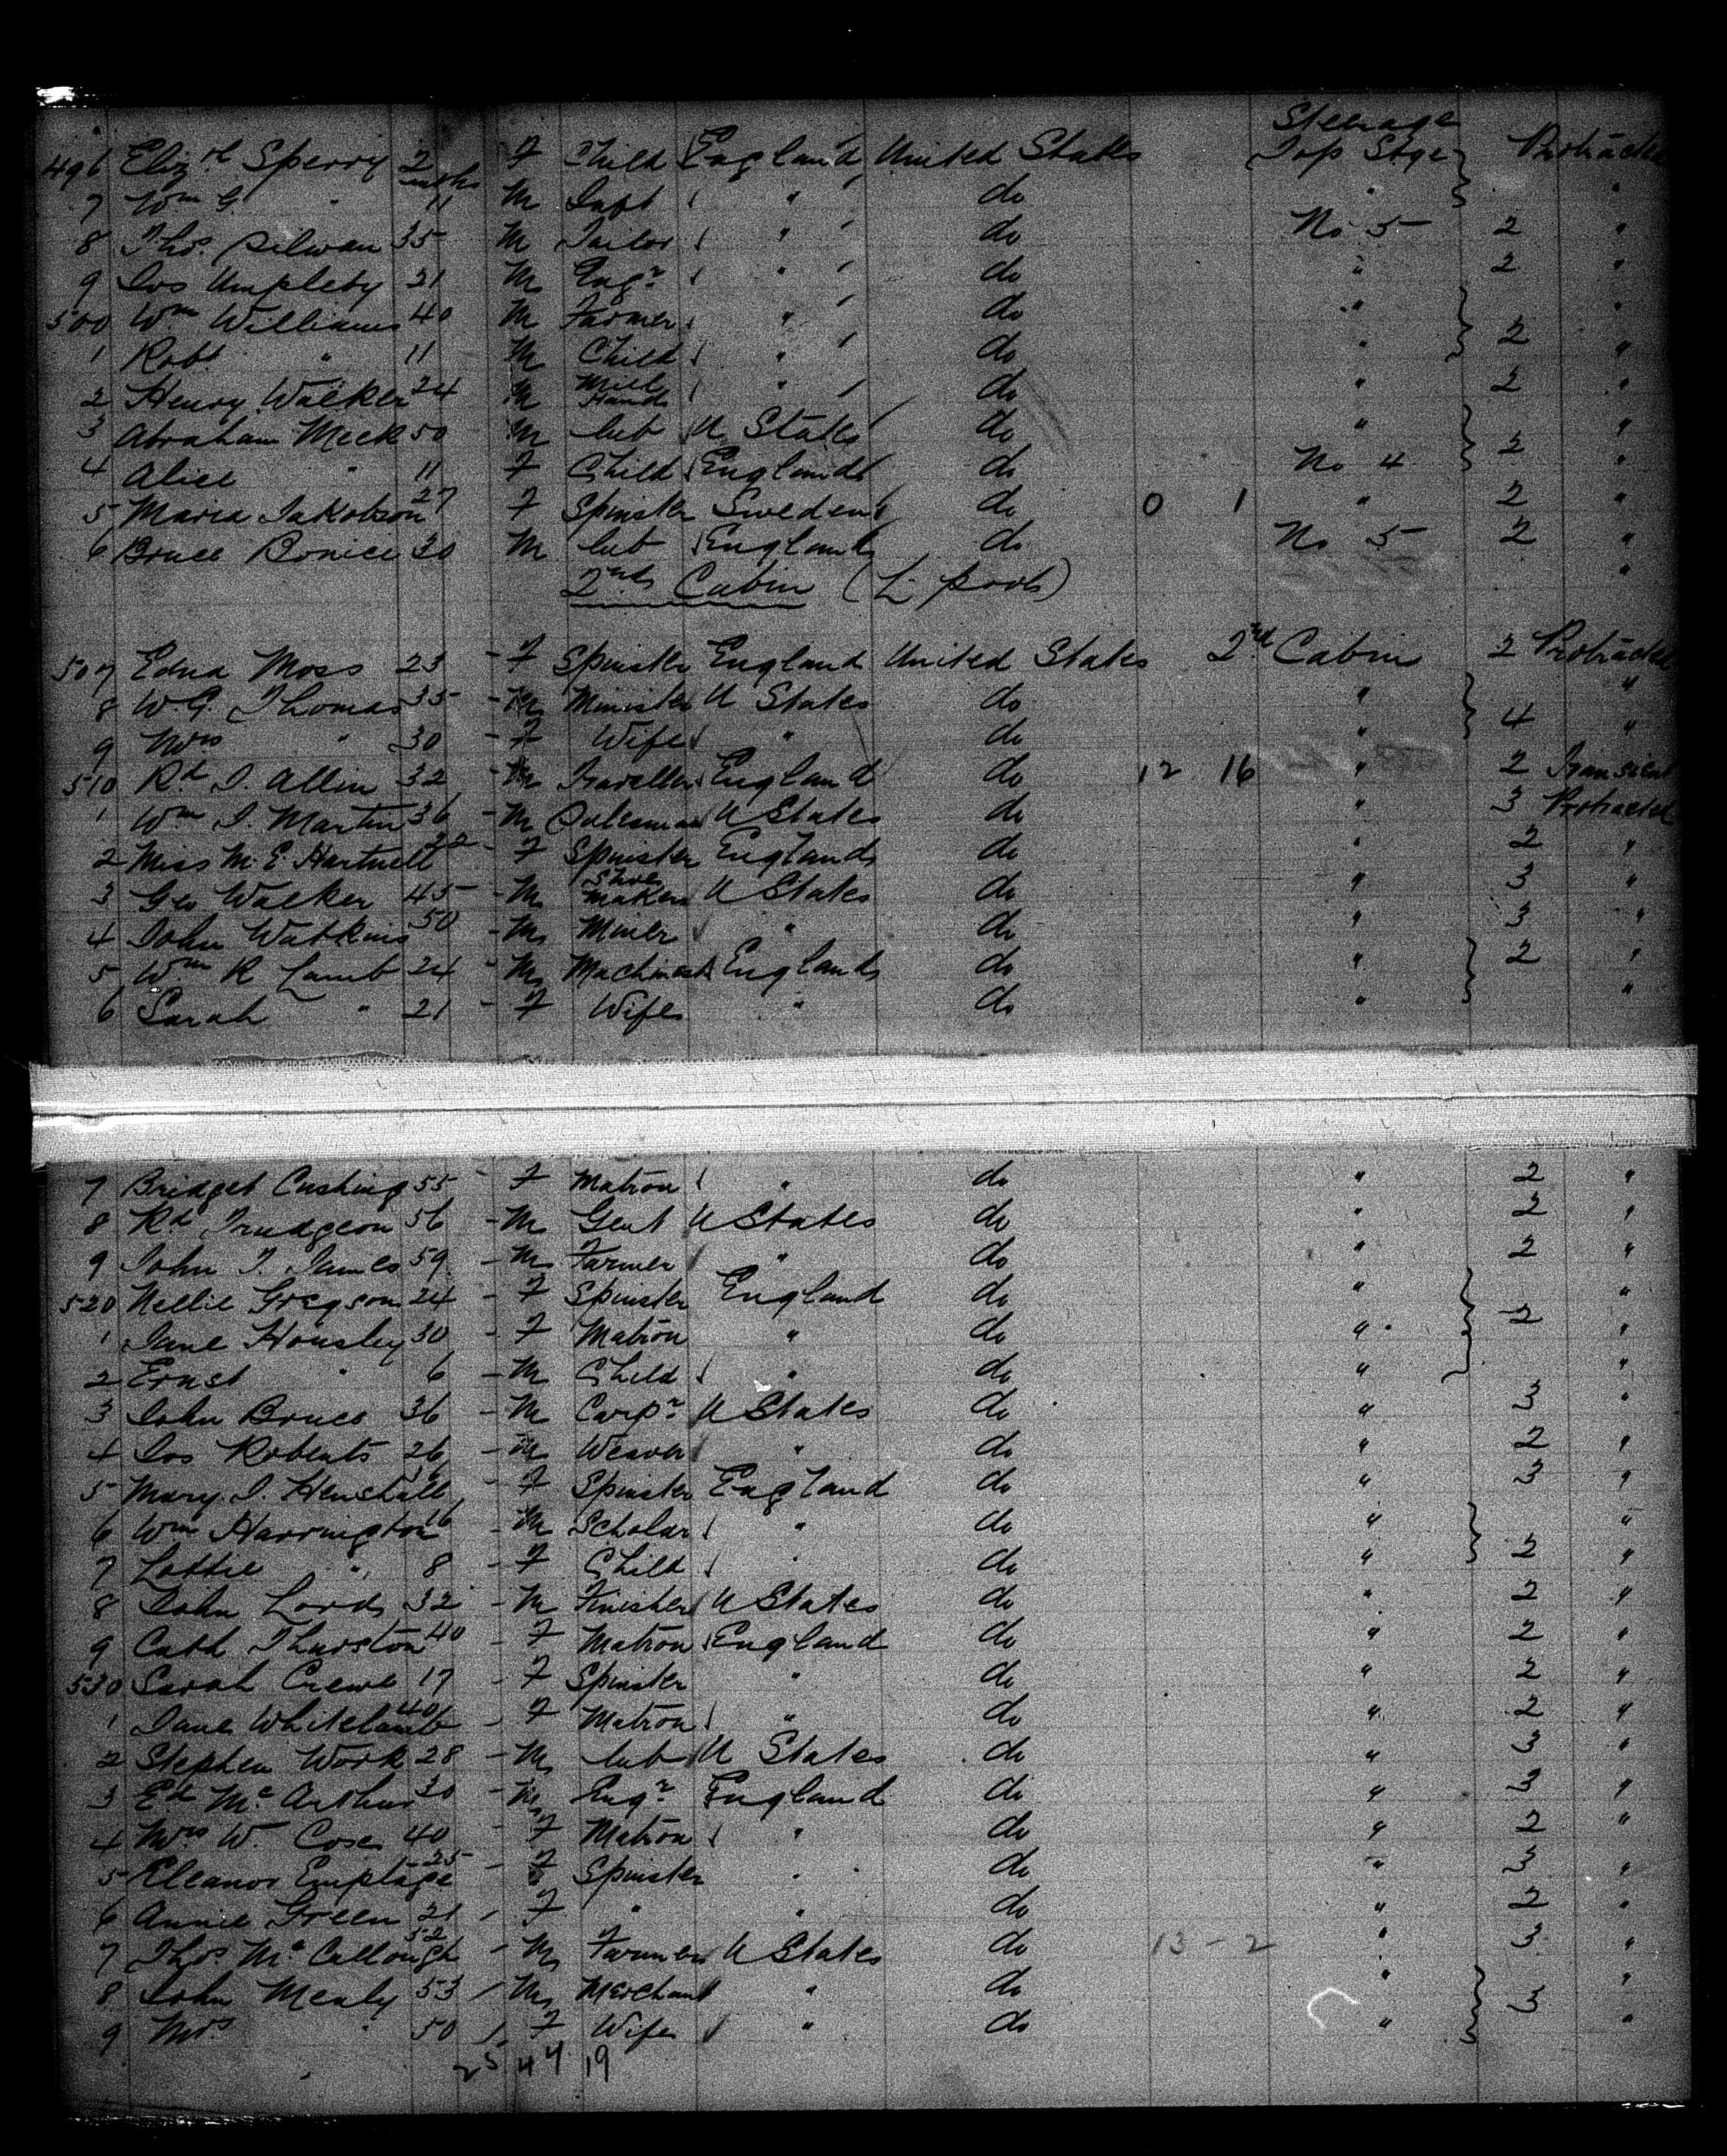 Steerage
496 Elizth Sperry 2 mths F Child England United States Top Stge Protracted
7 Wm G. " 11 M Inft " do " "
8 Thos. Silwan 35 M Tailor " do No 5 2 "
9 Jos Umpleby 21 M Engr " do " 2 "
500 Wm Williams 40 M Farmer " do " "
1 Robt " 11 M Child " do " 2 "
2 Henry Walker 24 M Mill Hand " do " 2 "
3 Abraham Meek 50 M Lab U States do " "
4 Alice " 11 F Child England do No 4 2 "
5 Maria Jakobson 27 F Spinster Sweden do 0 1 " 2 "
6 Bruce Bonice 30 M Lab England do No 5 2 "
2nd Cabin (L-pool) "
507 Edna Moss 23 - F Spinster England United States 2nd Cabin 2 Protracted
8 W G. Thomas 35 - M Minister U States do " "
9 Mrs " 30 - F Wife " do " 4 "
510 Rd J. Allin 32 - M Traveller England do 12 16 " 2 Transient
1 Wm J. Martin 36 - M Salesman U States do " 3 Protracted
2 Miss M. E Hartnell 22 - F Spinster England do " 2 "
3 Geo Walker 45 - M Shoe maker U States do " 3 "
4 John Watkins 50 - M Miner " do " 3 "
5 Wm R Lamb 24 - M Machinist England do " 2 "
6 Sarah " 21 - F Wife " do " "
7 Bridget Cushing 55 - F Matron " do " 2 "
8 Rd Trudgeon 56 - M Gent U States do " 2 "
9 John T. James 59 - M Farmer " do " 2 "
520 Nellie Gregson 24 - F Spinster England do " "
1 Jane Housley 30 - F Matron " do " 2 "
2 Ernst " 6 - M Child " do " "
3 John Bruce 36 - M Carpr U States do " 3 "
4 Jos Roberts 26 - M Weaver " do " 2 "
5 Mary. J. Henshall 36 - F Spinster England do " 3 "
6 Wm Harrington 16 - M Scholar " do " "
7 Lottie " 8 - F Child " do " 2 "
8 John Lord 32 - M Finisher U States do " 2 "
9 Cath Thurston 40 - F Matron England do " 2 "
530 Sarah Crewe 17 - F Spinster " do " 2 "
1 Jane Whitelamb 40 - F Matron " do " 2 "
2 Stephen Work 28 - M Lab U States do " 3 "
3 Ed Mc Arthur 30 - M Engr England do " 3 "
4 Mrs W. Cose 40 - F Matron " do " 2 "
5 Eleanor Emptage 25 - F Spinster " do " 3 "
6 Annie Green 21 - F " " do " 2 "
7 Thos. Mc Cullough 52 - M Farmer U States do 13 - 2 " 3 "
8 John Mealy 53 - M Merchant " do " "
9 Mrs. " 50 - F Wife " do " 3 "
25 44 19